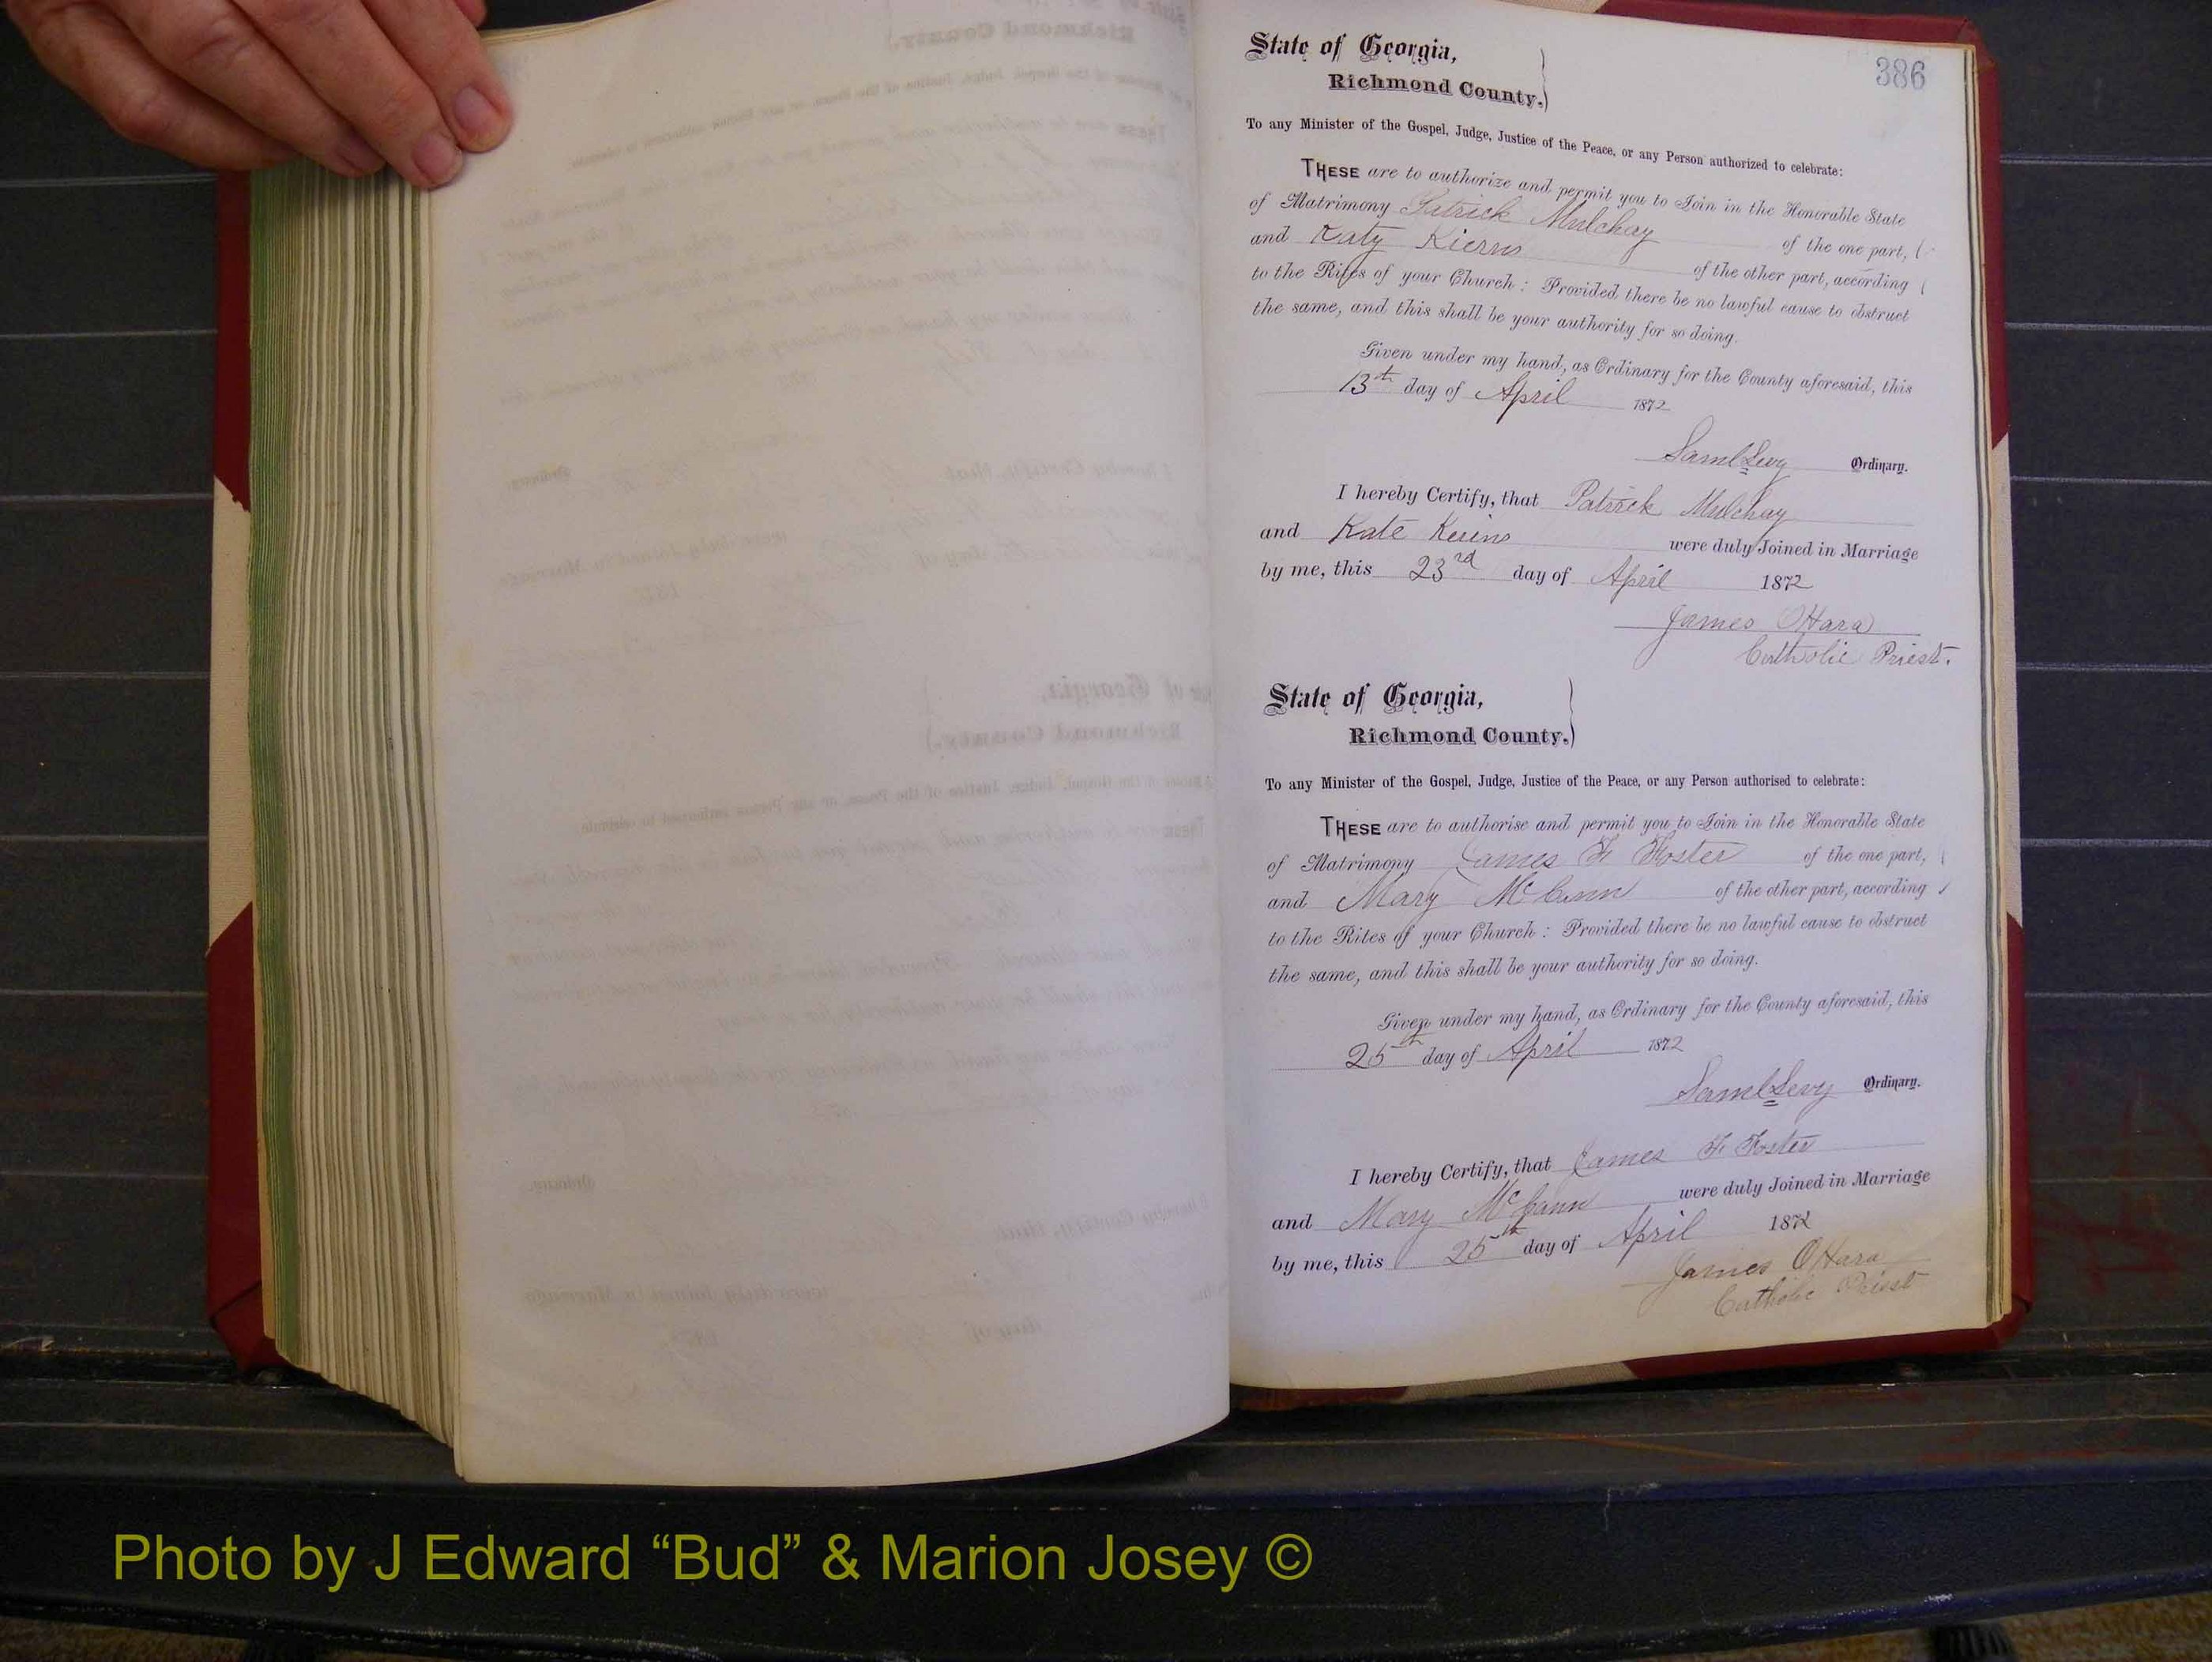 386
State of Georgia,
Richmond County.
To any Minister of the Gospel, Judge, Justice of the Peace, or any Person authorized to celebrate:
THESE are to authorize and permit you to Join in the Honorable State
of Matrimony Patrick Mulchay of the one part,
and Katy Kierns of the other part, according
to the Rites of your Church: Provided there be no lawful cause to obstruct
the same, and this shall be your authority for so doing.
Given under my hand, as Ordinary for the County aforesaid, this
13th day of April 1872
Saml Levy Ordinary.
I hereby Certify, that Patrick Mulchay
and Kate were duly Joined in Marriage
by me, this 23rd day of April 1872
James OHara
Catholic Priest.
State of Georgia,
Richmond County.
To any Minister of the Gospel, Judge, Justice of the Peace, or any Person authorised to celebrate:
THESE are to authorise and permit you to Join in the Honorable State
of Matrimony James F Foster of the one part,
and Mary McCann of the other part, according
to the Rites of your Church: Provided there be no lawful cause to obstruct
the same, and this shall be your authority for so doing.
Given under my hand, as Ordinary for the County aforesaid, this
25th day of April 1872
Saml Levy Ordinary.
I hereby Certify, that James F Foster
and Mary McCann were duly Joined in Marriage
by me, this 25th day of April 1872
James OHara
Catholic Priest
Photo by J Edward “Bud” & Marion Josey ©